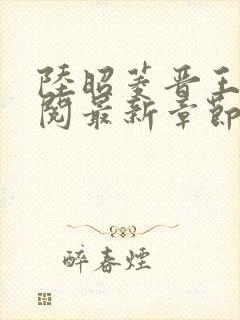 陸昭菱晋王
閱最新章節
醉春煙